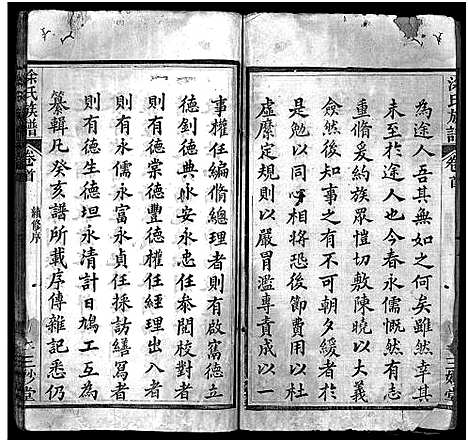 為途人吾其無如之何矣雖然幸
未至於途人也今春永儒慨然有
重脩爰約族眾愷切敷陳曉以大義
僉然後知事之不可朝夕緩者於
是勉以同心相與恐後節費用以
虛縻定規則以嚴冒濫專責成以一
事權任編脩總理者則有啟富德立
德釗德典永安永忠任參閱校對者
則有德崇德豐德權任經理出入者
則有永儒永富永貞任採訪繕寫者
則有德生德坦永清計日鳩工互為
纂輯凡癸亥譜所載序傳雜記悉仍
涂氏族譜
卷首
續修序
三妙堂
涂氏族譜
卷首